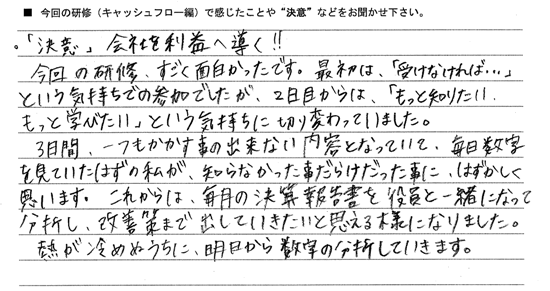 ■ 今回の研修（キャッシュフロー編）で感じたことや“決意”などをお聞かせ下さい。
。「決意」会社を利益へ導く!!
今回の研修、すごく面白かったです。最初は、「受けなければ…」
という気持ちでの参加でしたが、2日目からは、「もっと知りたい!
もっと学びたい」という気持ちに切り変わっていました。
3日間、一つもかかす事の出来ない内容となっていて、毎日数字
を見ていたはずの私が、知らなかった事だらけだった事に、はずかしく
思います。これからは、毎月の決算報告書を役員と一緒になって
分析し、改善策まで出していきたいと思える様になりました。
熱が冷めぬうちに、明日から数字の分析していきます。